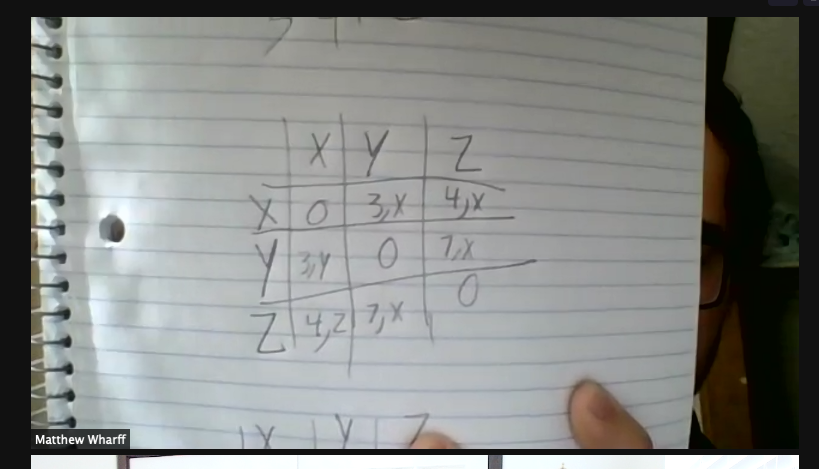 X Y Z
X 0 3,X 4,X
Y 3,Y 0 7,X
Z 4,Z 7,X 0
X Y Z
Matthew Wharff